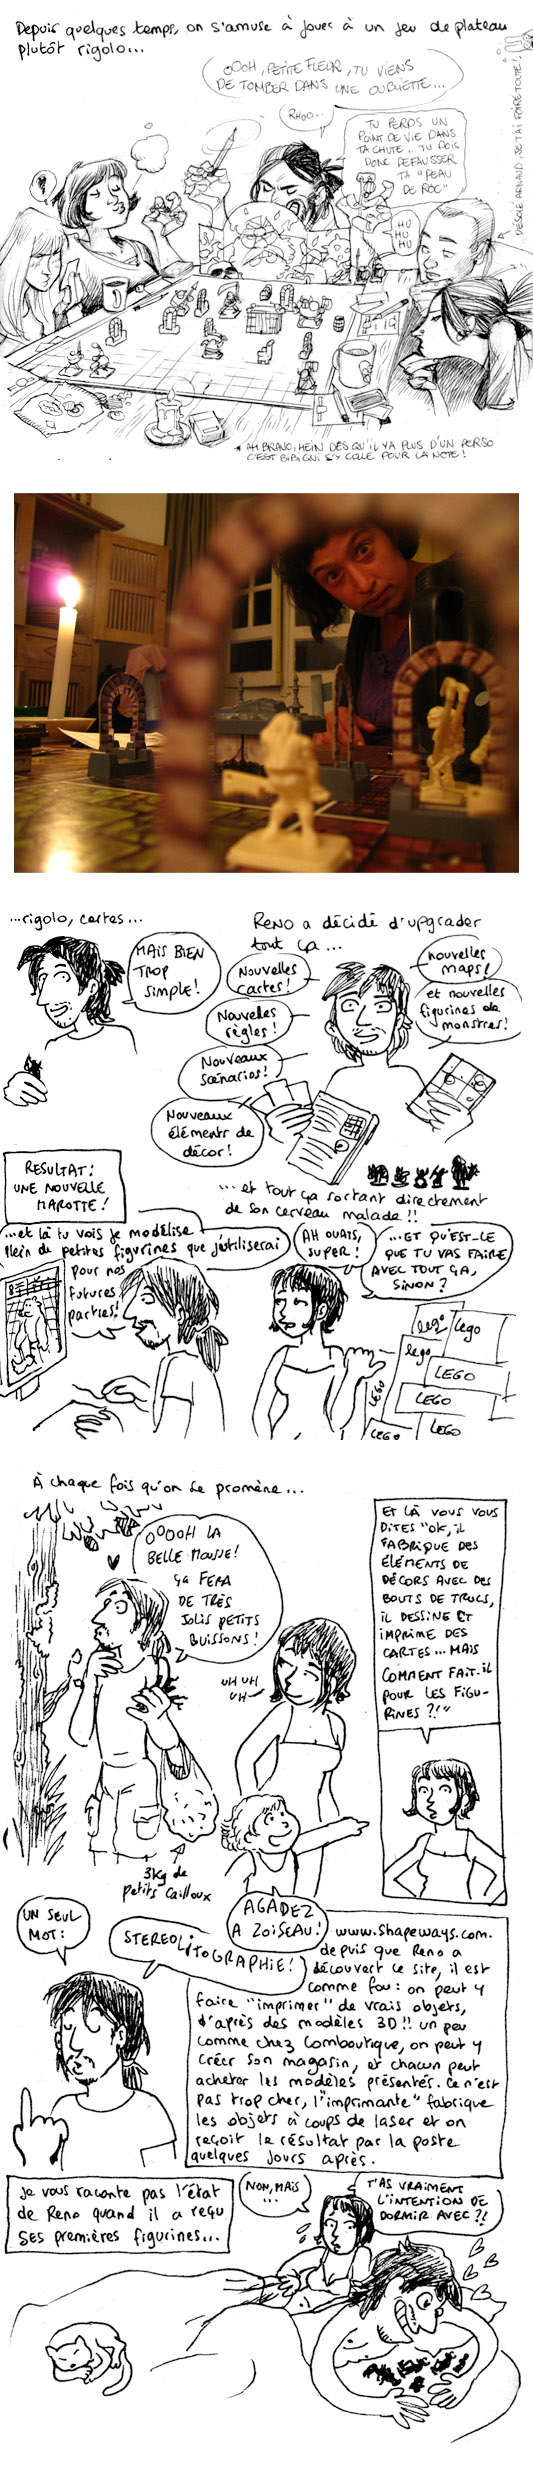 Depuis quelques temps, on s'amuse à jouer à un jeu de plateau
plutôt rigolo...
OOOH, PETITE FLEUR, TU VIENS
DE TOMBER DANS UNE OUBLIETTE...
RHOO...
TU PERDS UN
POINT DE VIE DANS
TA CHUTE... TU DOIS
DONC DEFAUSSER
TA "PEAU
DE ROC"
HU
HU
HU
DÉSOLÉ ARNAUD, JE T'AI FOIRÉ TOUTE!
?
* AH BRAVO, HEIN DÈS QU'IL Y A PLUS D'UN PERSO
C'EST BIBI QUI S'Y COLLE POUR LA NOTE!
...rigolo, certes...
MAIS BIEN
TROP
SIMPLE!
RENO a décidé d'upgrader
tout ça...
Nouvelles
cartes!
nouvelles
maps!
Nouvelles
règles!
et nouvelles
figurines de
monstres!
Nouveaux
scénarios!
Nouveaux
éléments de
décor!
...et tout ça sortant directement
de son cerveau malade!!
RESULTAT:
UNE NOUVELLE
MAROTTE!
...et là tu vois je modélise
plein de petites figurines que j'utiliserai
pour nos
futures
parties!
AH OUAIS,
SUPER!
...ET QU'EST-CE
QUE TU VAS FAIRE
AVEC TOUT ÇA,
SINON?
lego
lego
lego
LEGO
LEGO
LEGO
LEGO
LEGO
À chaque fois qu'on se promène...
OOOOH LA
BELLE MOUSSE!
ÇA FERA
DE TRÈS
JOLIS PETITS
BUISSONS!
UH UH
UH
3kg de
petits cailloux
AGADEZ
A ZOISEAU!
ET LÀ VOUS VOUS
DITES "OK, IL
FABRIQUE DES
ÉLÉMENTS DE
DÉCORS AVEC DES
BOUTS DE TRUCS,
IL DESSINE ET
IMPRIME DES
CARTES... MAIS
COMMENT FAIT-IL
POUR LES FIGU-
RINES ?!"
UN SEUL
MOT:
STEREOLITOGRAPHIE!
www.shapeways.com.
depuis que Reno a
découvert ce site, il est
comme fou: on peut y
faire "imprimer" de vrais objets,
d'après des modèles 3D!! un peu
comme chez Comboutique, on peut y
créer son magasin, et chacun peut
acheter les modèles présentés. Ce n'est
pas trop cher, l'"imprimante" fabrique
les objets à coups de laser et on
reçoit le résultat par la poste
quelques jours après.
Je vous raconte pas l'état
de Reno quand il a reçu
ses premières figurines...
NON, MAIS
...
T'AS VRAIMENT
L'INTENTION DE
DORMIR AVEC ?!